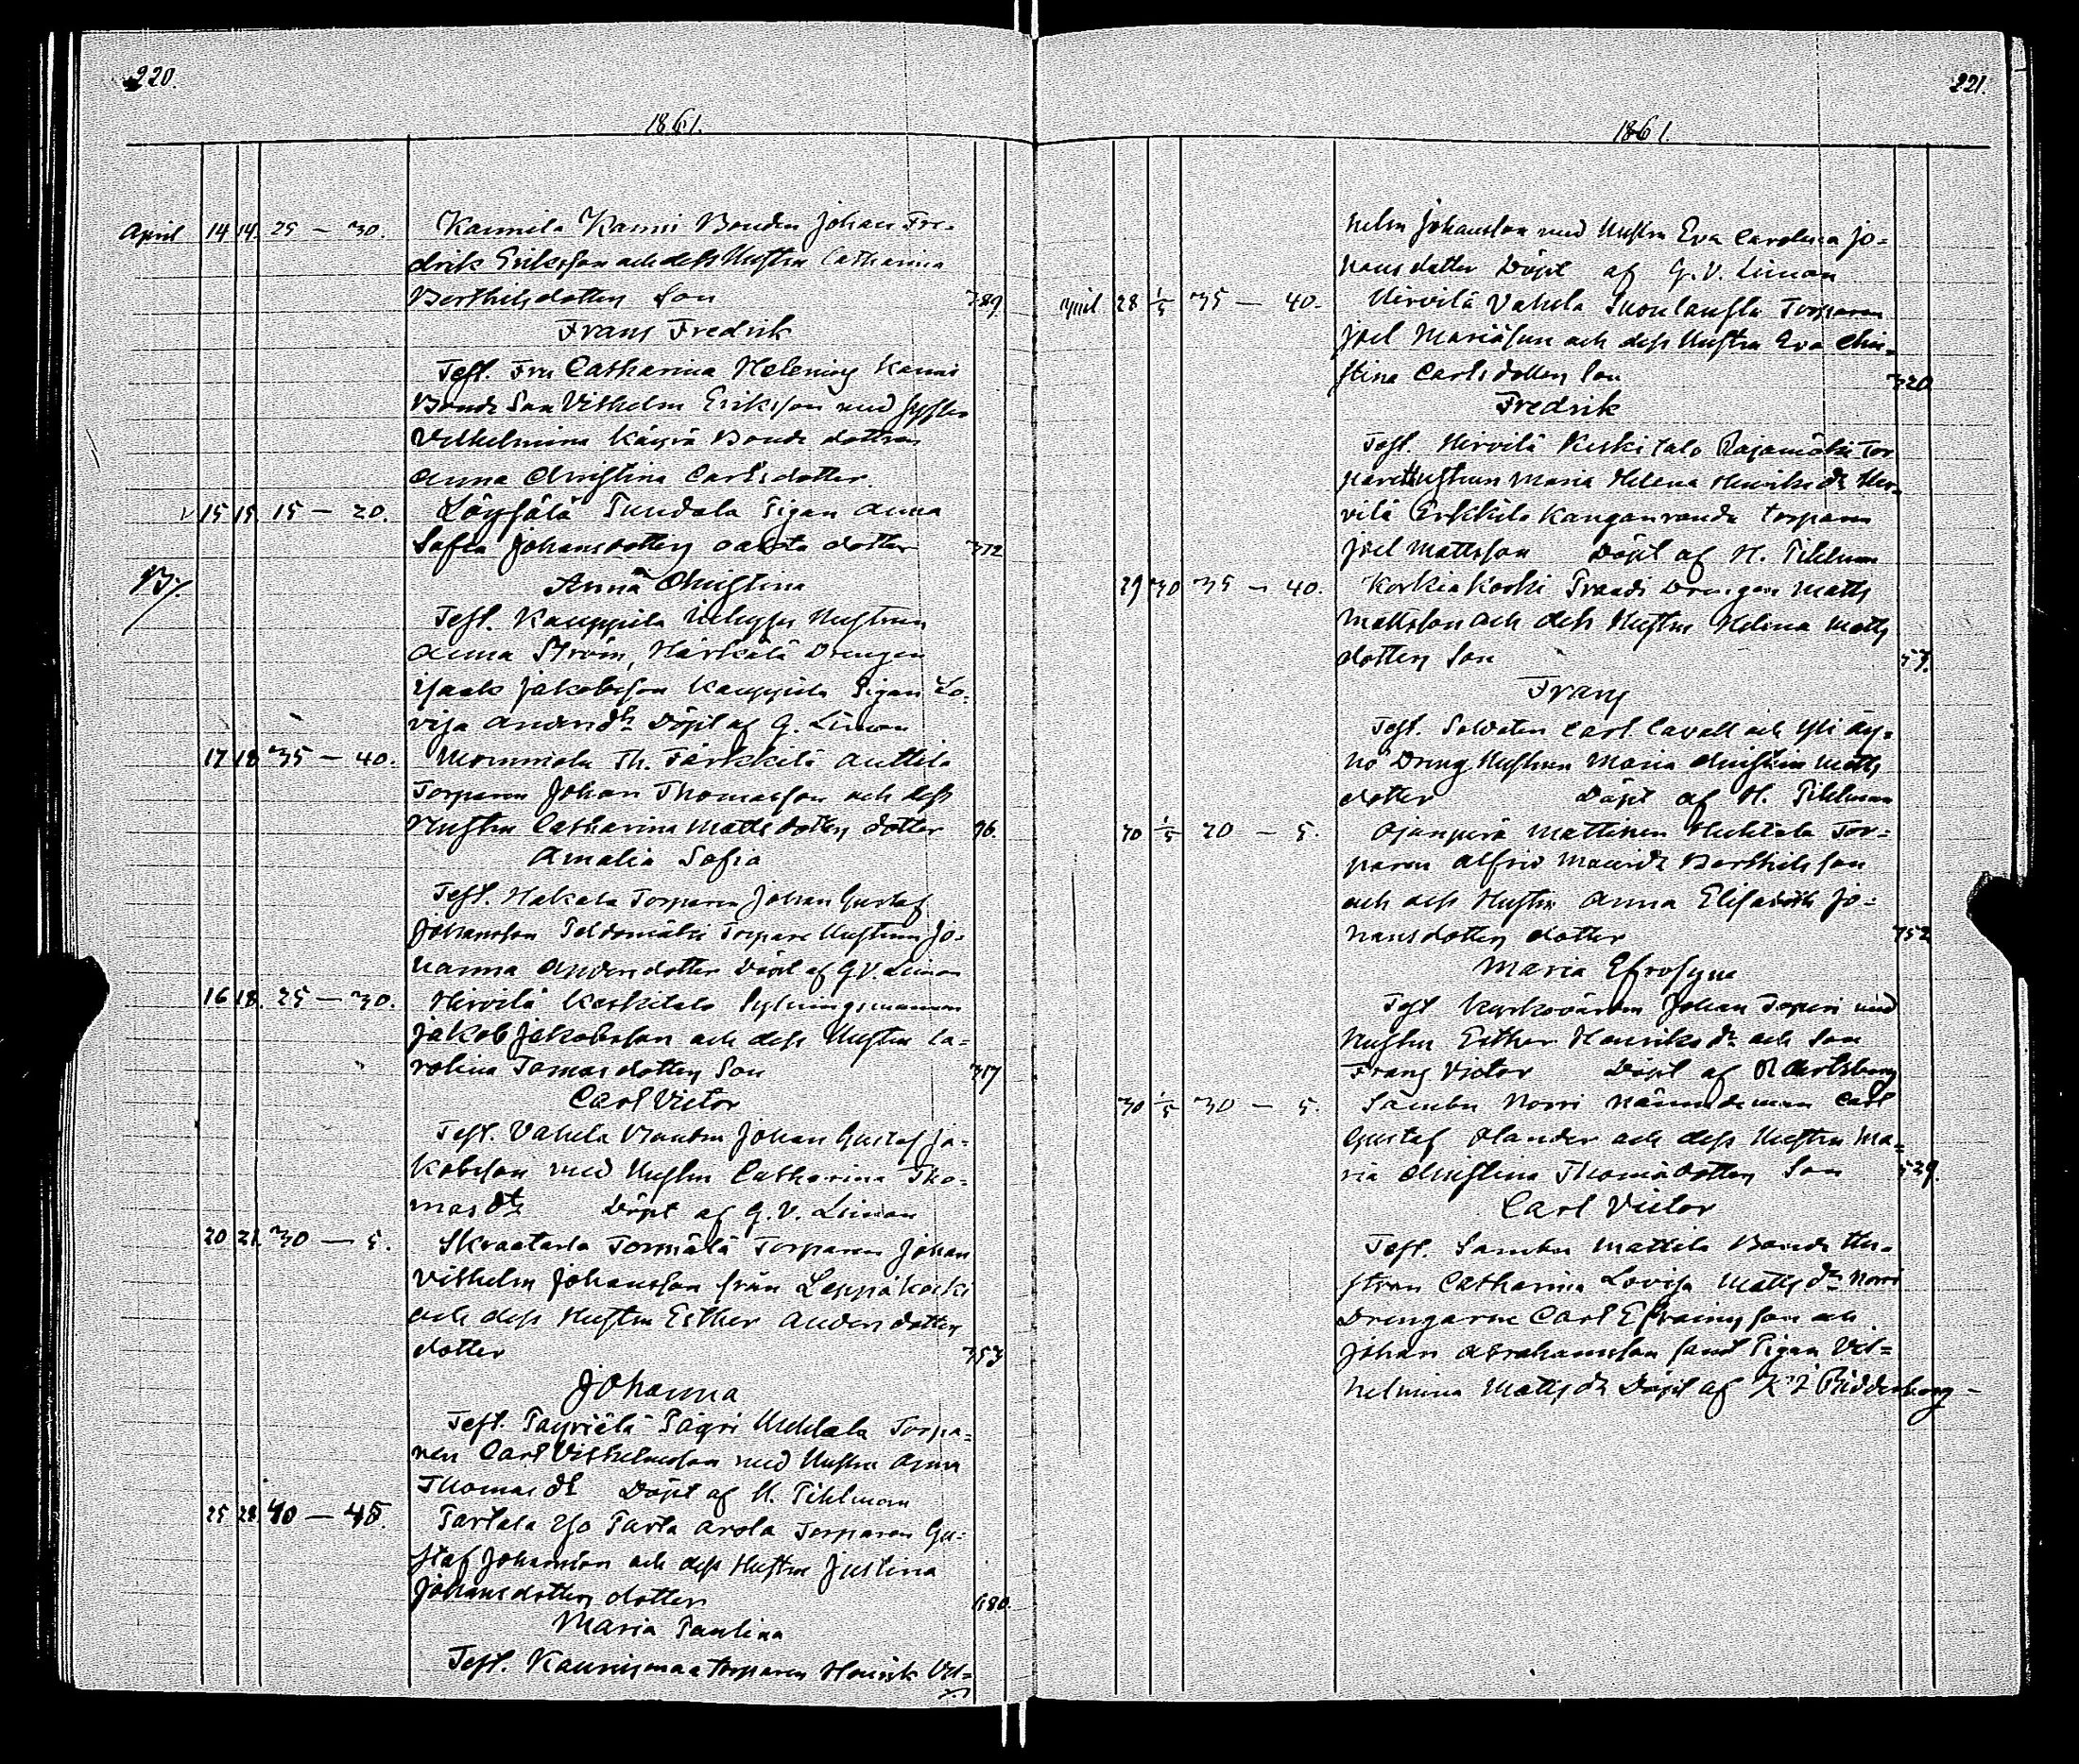 220.
1861.
April 14 14. 25 — 30. Kaunela Kanni Bonden Johan Fre-
drik Eriksson och dess Hustru Catharina
Berthilsdotters Son 389
Frans Fredrik
Test. Fru Catharina Helenius Kanni
Bonde Son Vilhelm Eriksson med Syster
Vilhelmina Käyrä Bonde dottren
Anna Christina Carlsdotter.
15 15. 15 — 20. Löysälä Pundala Pigan Anna
Sofia Johansdotters oäkta dotter 372
Anna Christina
Test. Kauppila Hustrun
Anna Ström, Härkälä Drengen
Isaak Jakobsson Kauppila Pigan Lo-
visa Andersdr Döpt af G. Liman
17 18 35 — 40. Mommola Th. Färkkilä Anttila
Torparen Johan Thomasson och dess
Hustru Catharina Mattsdotters dotter 96.
Amalia Sofia
Test. Hakala Torparen Johan Gustaf
Johansson Peldomäki Torpare Hustrun Jo-
hanna Andersdotter Döpt af G.V. Liman
16. 18. 25 — 30. Hirvilä Keskitalo Sytningsmannen
Jakob Jakobsson och dess Hustru Ca-
rolina Tomasdotters Son 317
Carl Victor
Test. Vahela Bonden Johan Gustaf Ja-
kobsson med Hustru Catharina Tho-
masdr Döpt af G. V. Liman
20 21. 30 — 5. Skraatarla Tormälä Torparen Johan
Vilhelm Johansson från Leppäkoski
och dess Hustru Esther Andersdotters
dotter 353
Johanna
Test. Päyri Torpa-
ren Carl Vilhelmsson med Hustru Anna
Thomasdr Döpt af H. Pihlman
25 28. 40 — 45. Tartala Iso Parta Arola Torparen Gu-
staf Johansson och dess Hustru Justina
Johansdotters dotter 680.
Maria Paulina
Test. Kaunismaa torparen Henrik Vil-
221.
1861.
helm Johansson med Hustru Eva Carolina Jo-
hansdotter Döpt af G. V. Liman
April 28 1/5 35 — 40. Hirvilä Vahela Torparen
Joel Mariässon och dess Hustru Eva Chri-
stina Carlsdotters Son 320
Fredrik
Test. Hirvilä Keskitalo Rajamäki Tor
pareHustrun Maria Helena Henriksdr Hir-
vilä Erkkilä Kanganranda torparen
Joel Mattsson Döpt af H. Pihlman
29 30 35 — 40. Korkiakoski Prandi Drengen Matts
Mattsson och dess Hustru Helena Matts
dotters Son 57.
Frans
Test. Soldaten Carl Cavall och Yli äy-
hö Dreng Hustrun Maria Christina Matts
dotter Döpt af H. Pihlman
30 1/5 20 — 5. Ojanperä Mattinen Huhtala Tor-
paren Alfrid Mauritz Berthilsson
och dess Hustru Anna Elisabeth Jo-
hansdotters dotter 752
Maria Efrosyne
Test Kyrkovärden Johan Tapani med
Hustru Esther Henriksdr och Son
Frans Victor Döpt af R Carlsberg
30 1/5 30 — 5. Sambu Norri Nämndeman Carl
Gustaf Olander och dess Hustru Ma-
ria Christina Thomädotters Son 539.
Carl Victor
Test. Sambu Mattila Bonde Hu-
strun Catharina Lovisa Mattsdr Norri
Drengarne Carl Efraimsson och
Johan Abrahamsson samt Pigan Vil-
helmina Mattsdr Döpt af K J Ridderborg -